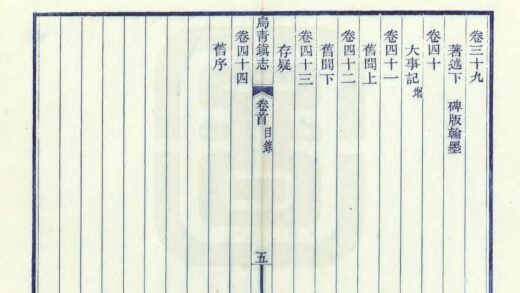 卷三十九
著述下 碑版翰墨
卷四十
大事記 增
卷四十一
舊聞上
卷四十二
舊聞下
卷四十三
存疑
烏青鎭志 卷首 目錄 五
卷四十四
舊序